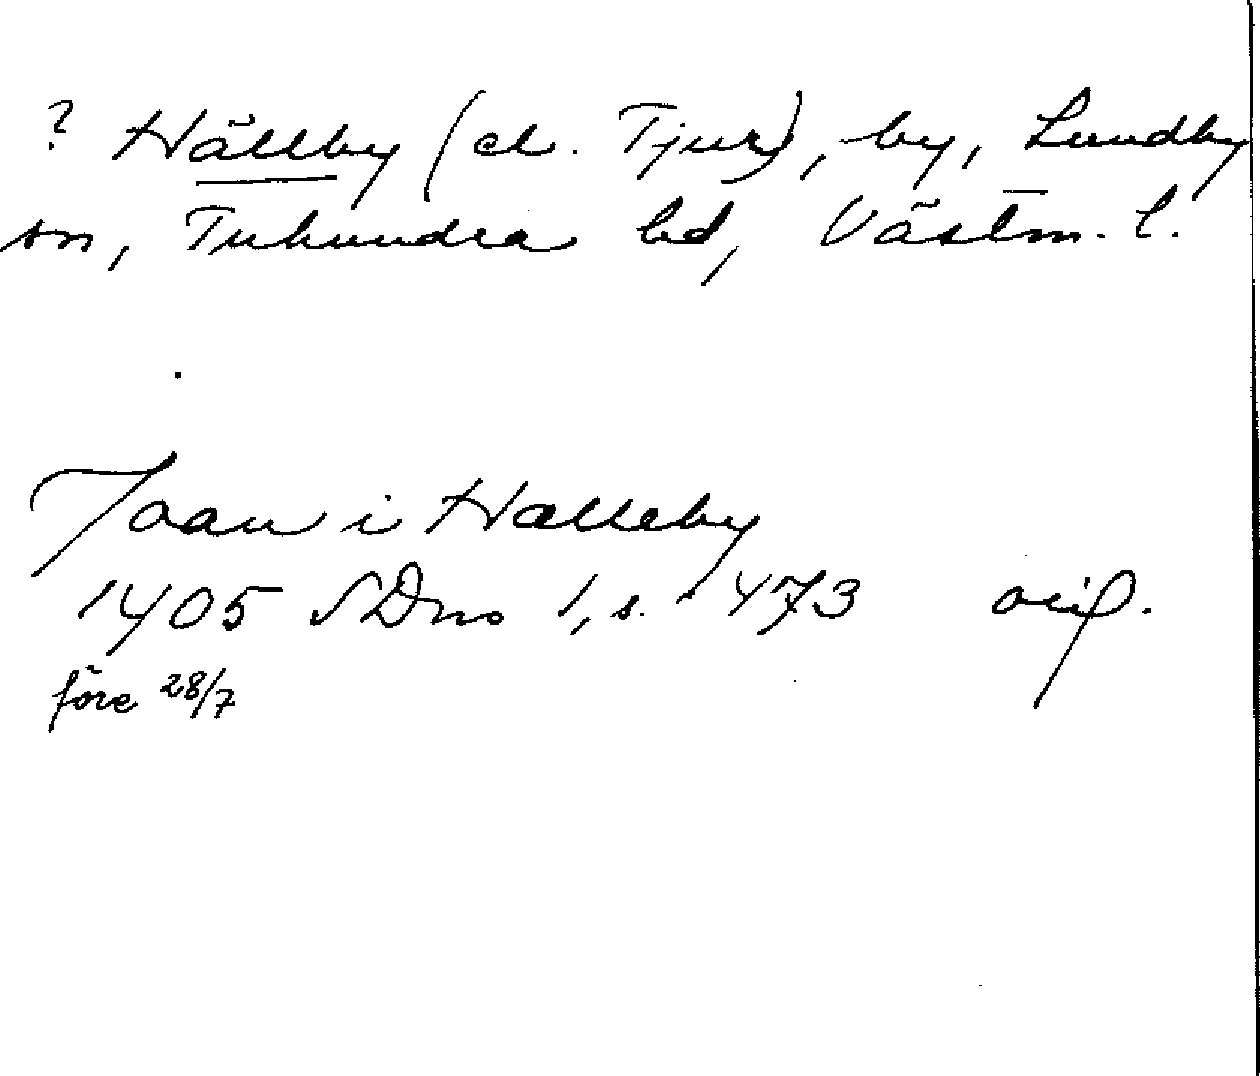 ? Hällby (el. Tjur), by, Lundby
sn, Tuhundra hd, Västm. l.
Joan i Halleby
1405 SDns 1, s. 473 orig.
före 28/7